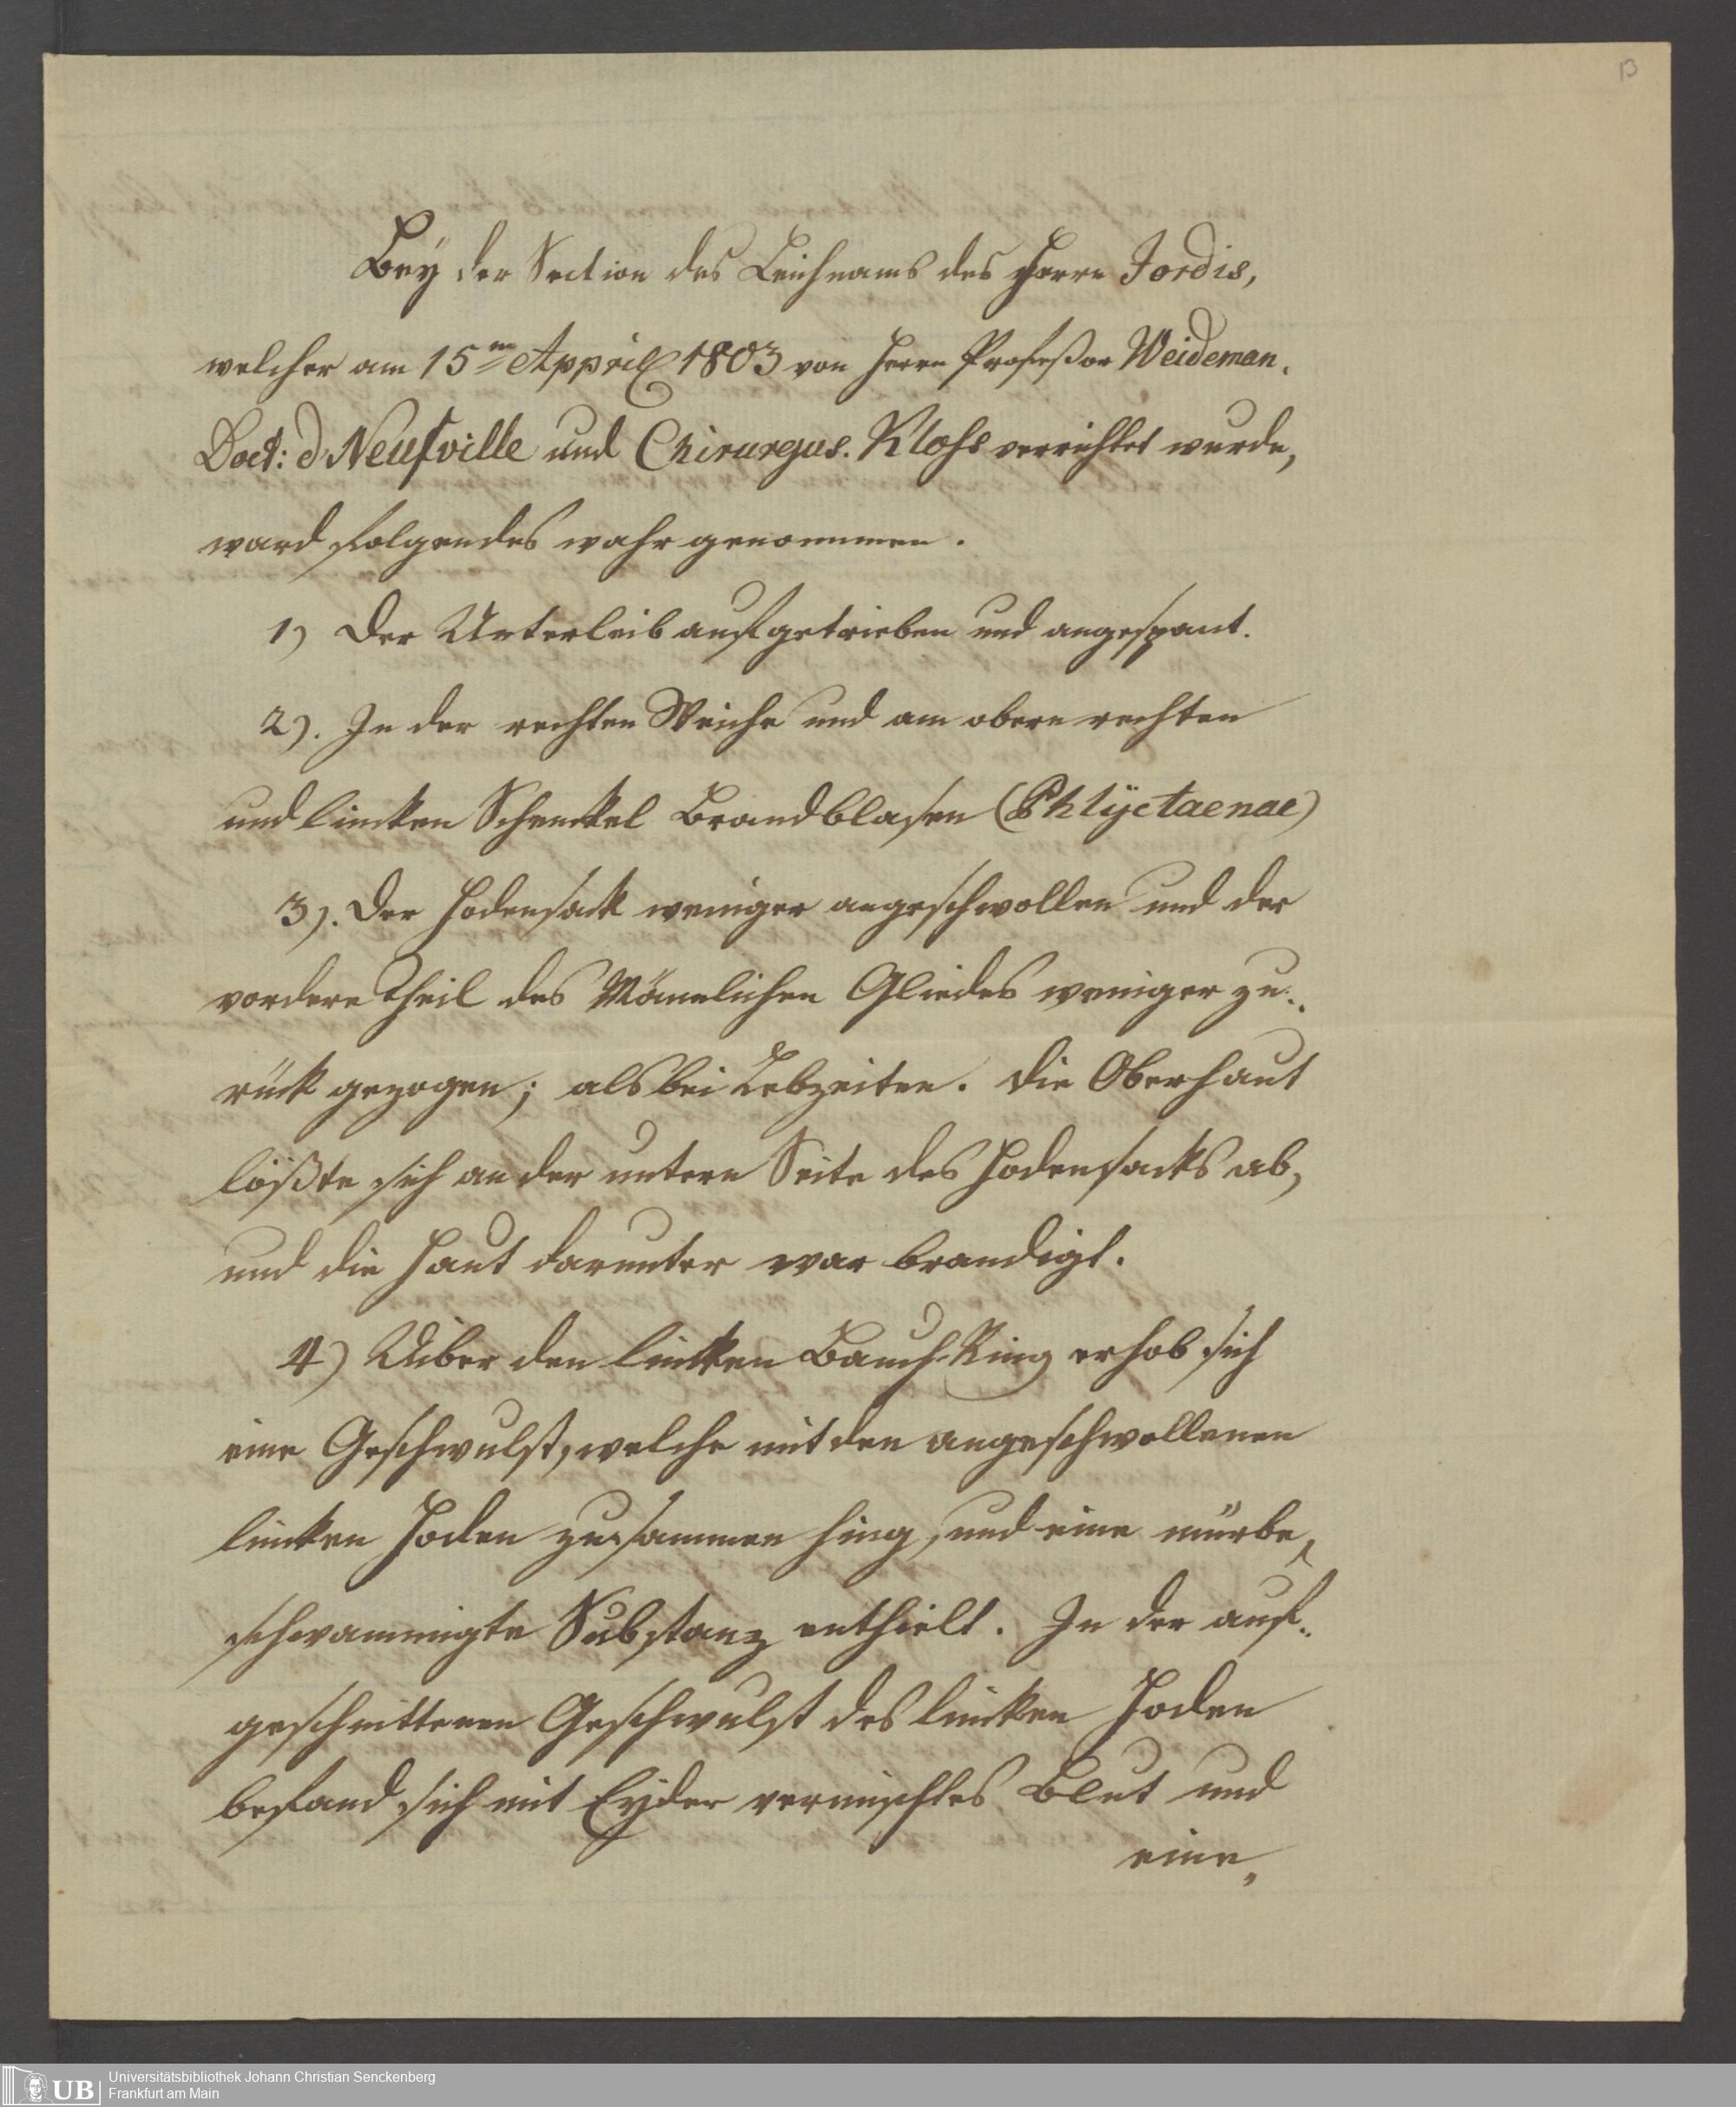 B
Beÿ der Section des Leichnams des Herrn Jordis,
welcher am 15ten Appril 1803 von Herrn Profeßor Weideman.
Doct: d Neufville und Chirurgus. Klohs verrichtet wurde,
ward folgendes wahr genommen.
1) Der Unterleib aufgetrieben und angespant.
2). In der rechten Weiche und am obern rechten
und lincken Schenckel Brandblasen (Phlÿctaenae)
3). Der Hodensack weniger angeschwollen und der
vordere Theil des Mänlichen Gliedes weniger zu..
rück gezogen; als bei Lebzeiten. die Oberhaut
lößte sich an der untern Seite des Hodensacks ab,
und die Haut darunter war brandigt.
4) Uiber den lincken Bauch-Ring erhob sich
eine Geschwulst, welche mit den angeschwollenen
lincken Hoden zusammen hing, und eine mürbe,
schwammigte Substanz enthielt. In der auf..
geschnittenen Geschwulst des lincken Hoden
befand sich mit Eyder vermischtes Blut und
eine,
UB
Universitätsbibliothek Johann Christian Senckenberg
Frankfurt am Main